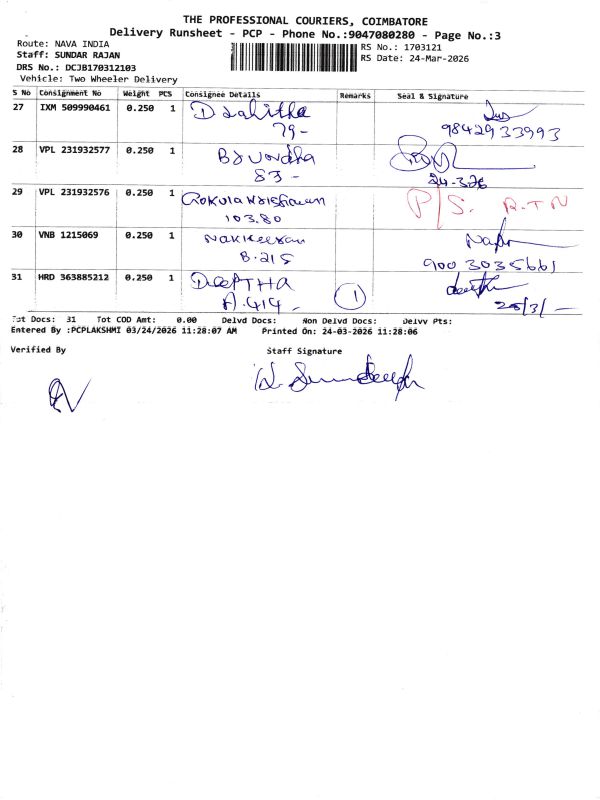 THE PROFESSIONAL COURIERS, COIMBATORE
Delivery Runsheet - PCP - Phone No.:9047080280 - Page No.:3
Route: NAVA INDIA
Staff: SUNDAR RAJAN
DRS No.: DCJB170312103
Vehicle: Two Wheeler Delivery
RS No.: 1703121
RS Date: 24-Mar-2026
S No Consignment No Weight PCS Consignee Details Remarks Seal & Signature
27 IXM 509990461 0.250 1
79-
9842933993
28 VPL 231932577 0.250 1
29 VPL 231932576 0.250 1 P/S. R.T.N
103.80
30 VNB 1215069 0.250 1 Nakkeeran
B.215
9003035661
31 HRD 363885212 0.250 1 DEEPTHA
A.414- 1
25/3/-
Tot Docs: 31 Tot COD Amt: 0.00 Delvd Docs: Non Delvd Docs: Delvv Pts:
Entered By :PCPLAKSHMI 03/24/2026 11:28:07 AM Printed On: 24-03-2026 11:28:06
Verified By Staff Signature